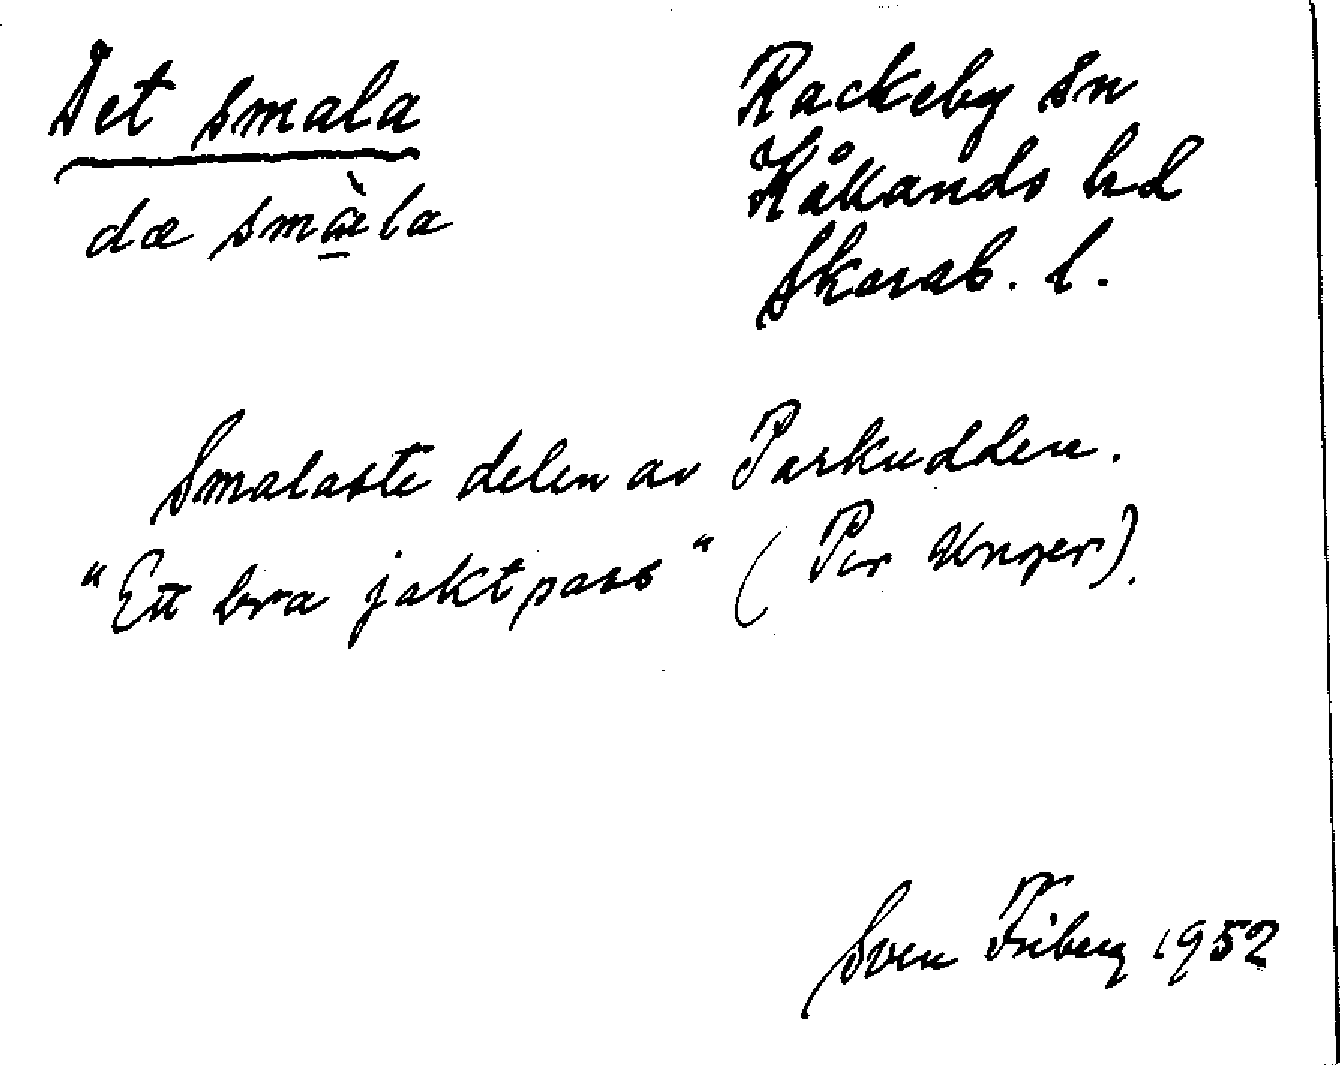 Det smala
dæ smæ̀la
Rackeby sn
Kållands hd
Skarab. l.
Smalaste delen av Parkudden.
"Ett bra jaktpass" (Per Unger).
Sven Friberg 1952